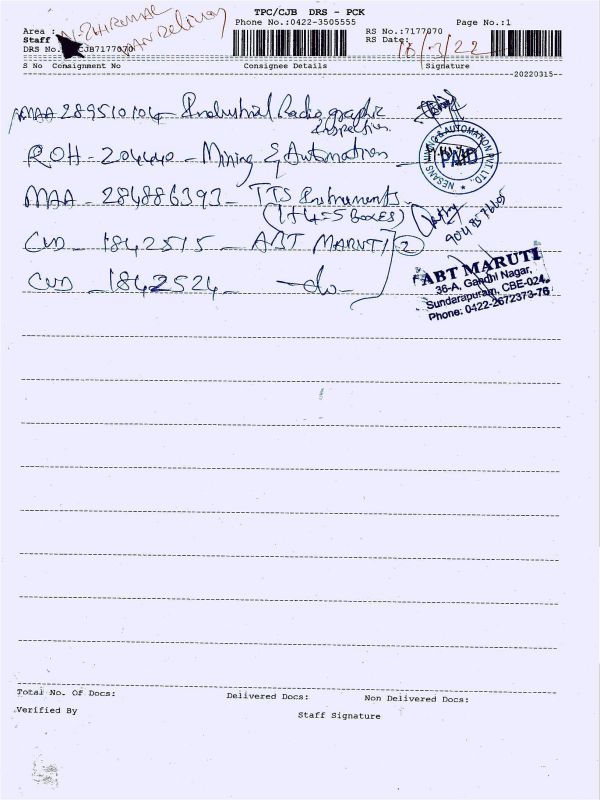 TPC/CJB DRS - PCK
Phone No.:0422-3505555 Page No.:1
Area :
Staff
RS No.:7177070
RS Date:
16/3/22
DRS No. CJB7177070
VAN Delivery
S No Consignment No Consignee Details Signature
20220315
MAA 289510104 - Industrial Radiographic
Inspection
ROH - 204440 - Mining & Automation
PAID
MAA - 284886393 - TTS Instruments
(1+4=5 Boxes)
CUD - 1842515 - ABT MARUTI (2)
CUD - 1842524 - do -
ABT MARUTI
36-A, Gandhi Nagar,
Sundarapuram, CBE-024.
Phone: 0422-2672373-76
Total No. Of Docs: Delivered Docs: Non Delivered Docs:
Verified By Staff Signature